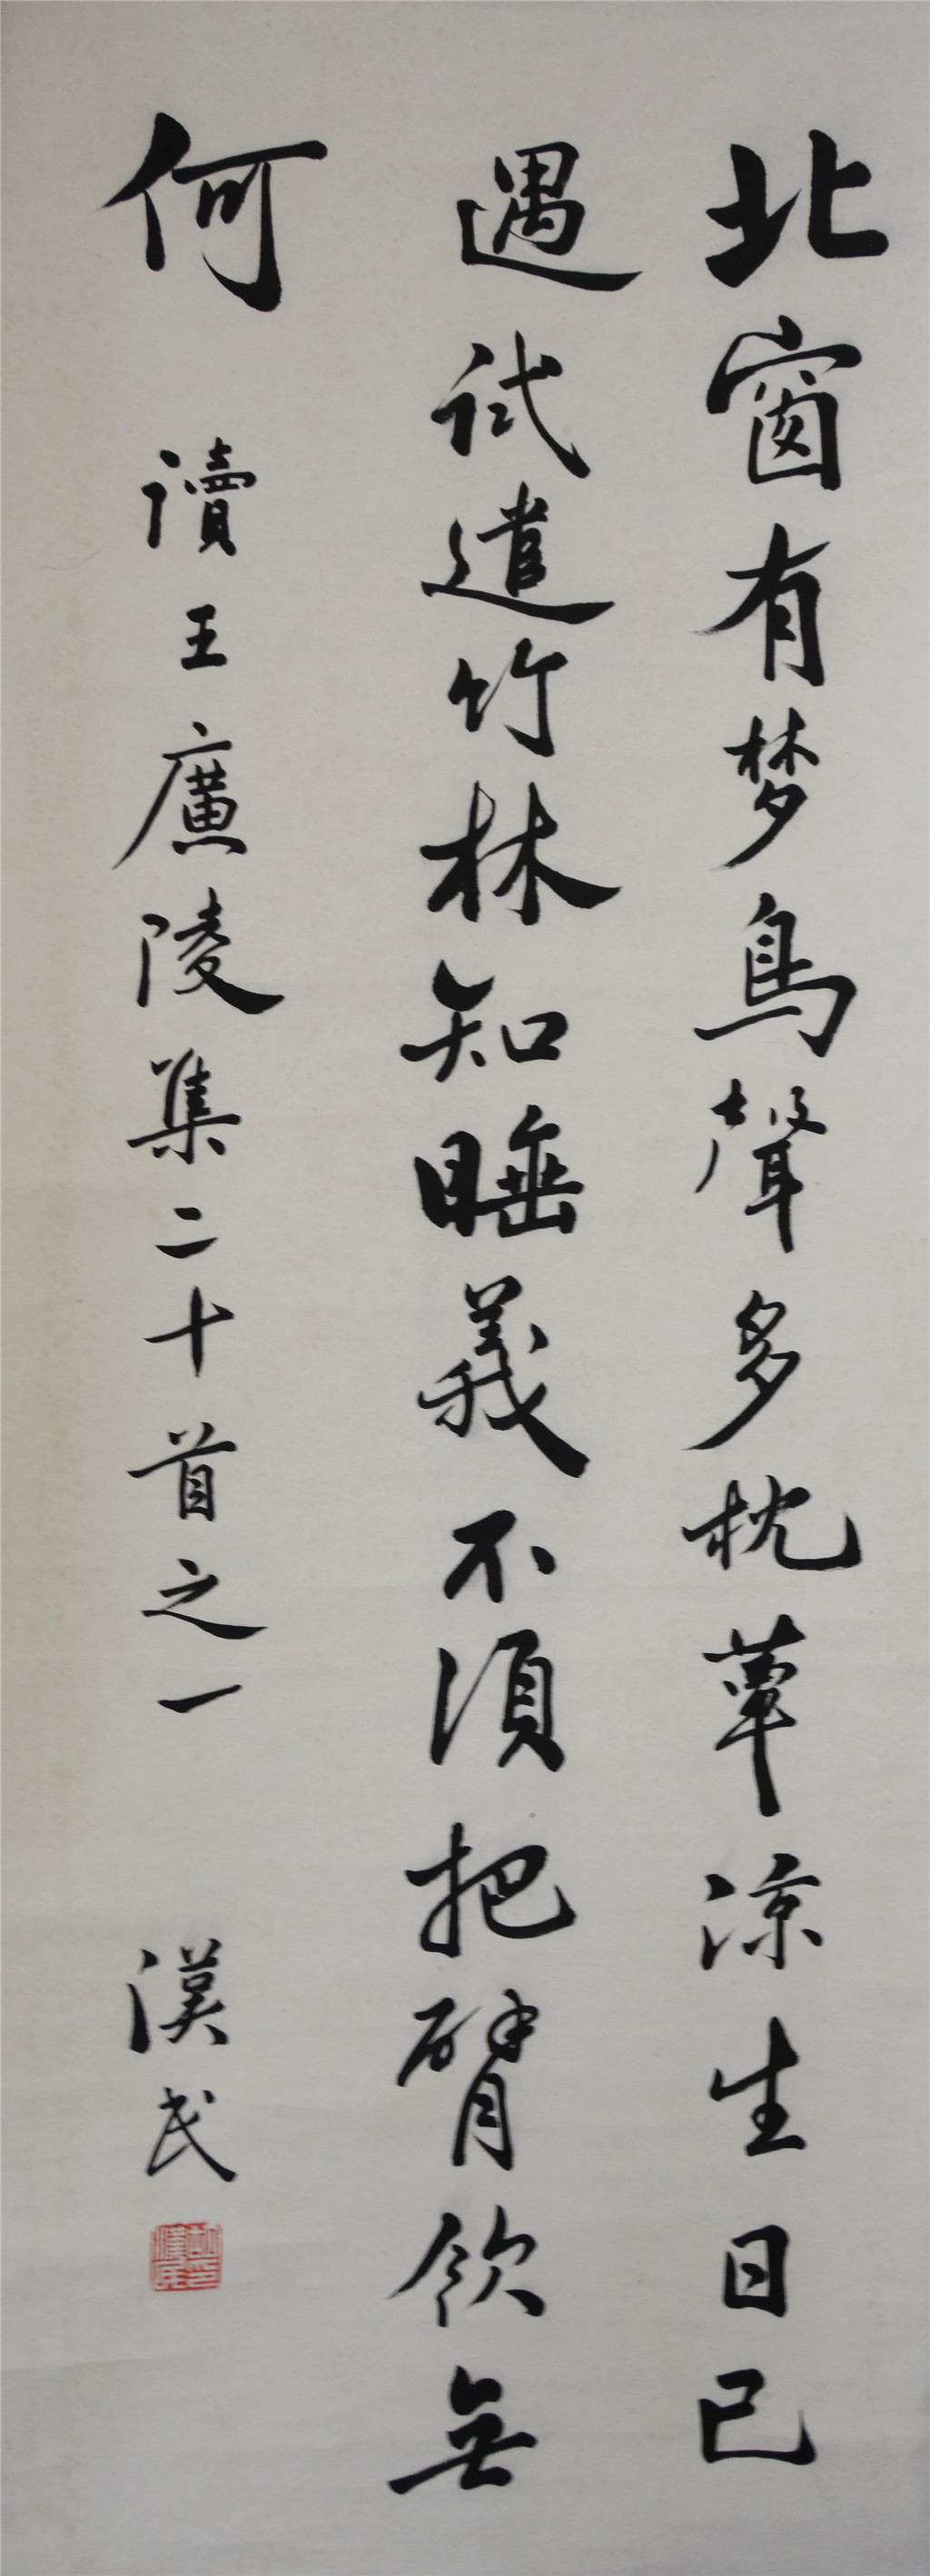 北窗有梦鳥聲多枕蕈涼生日已
遇試遣竹林知睡義不須把臂飲無
何
讀王廣陵集二十首之一
漢民